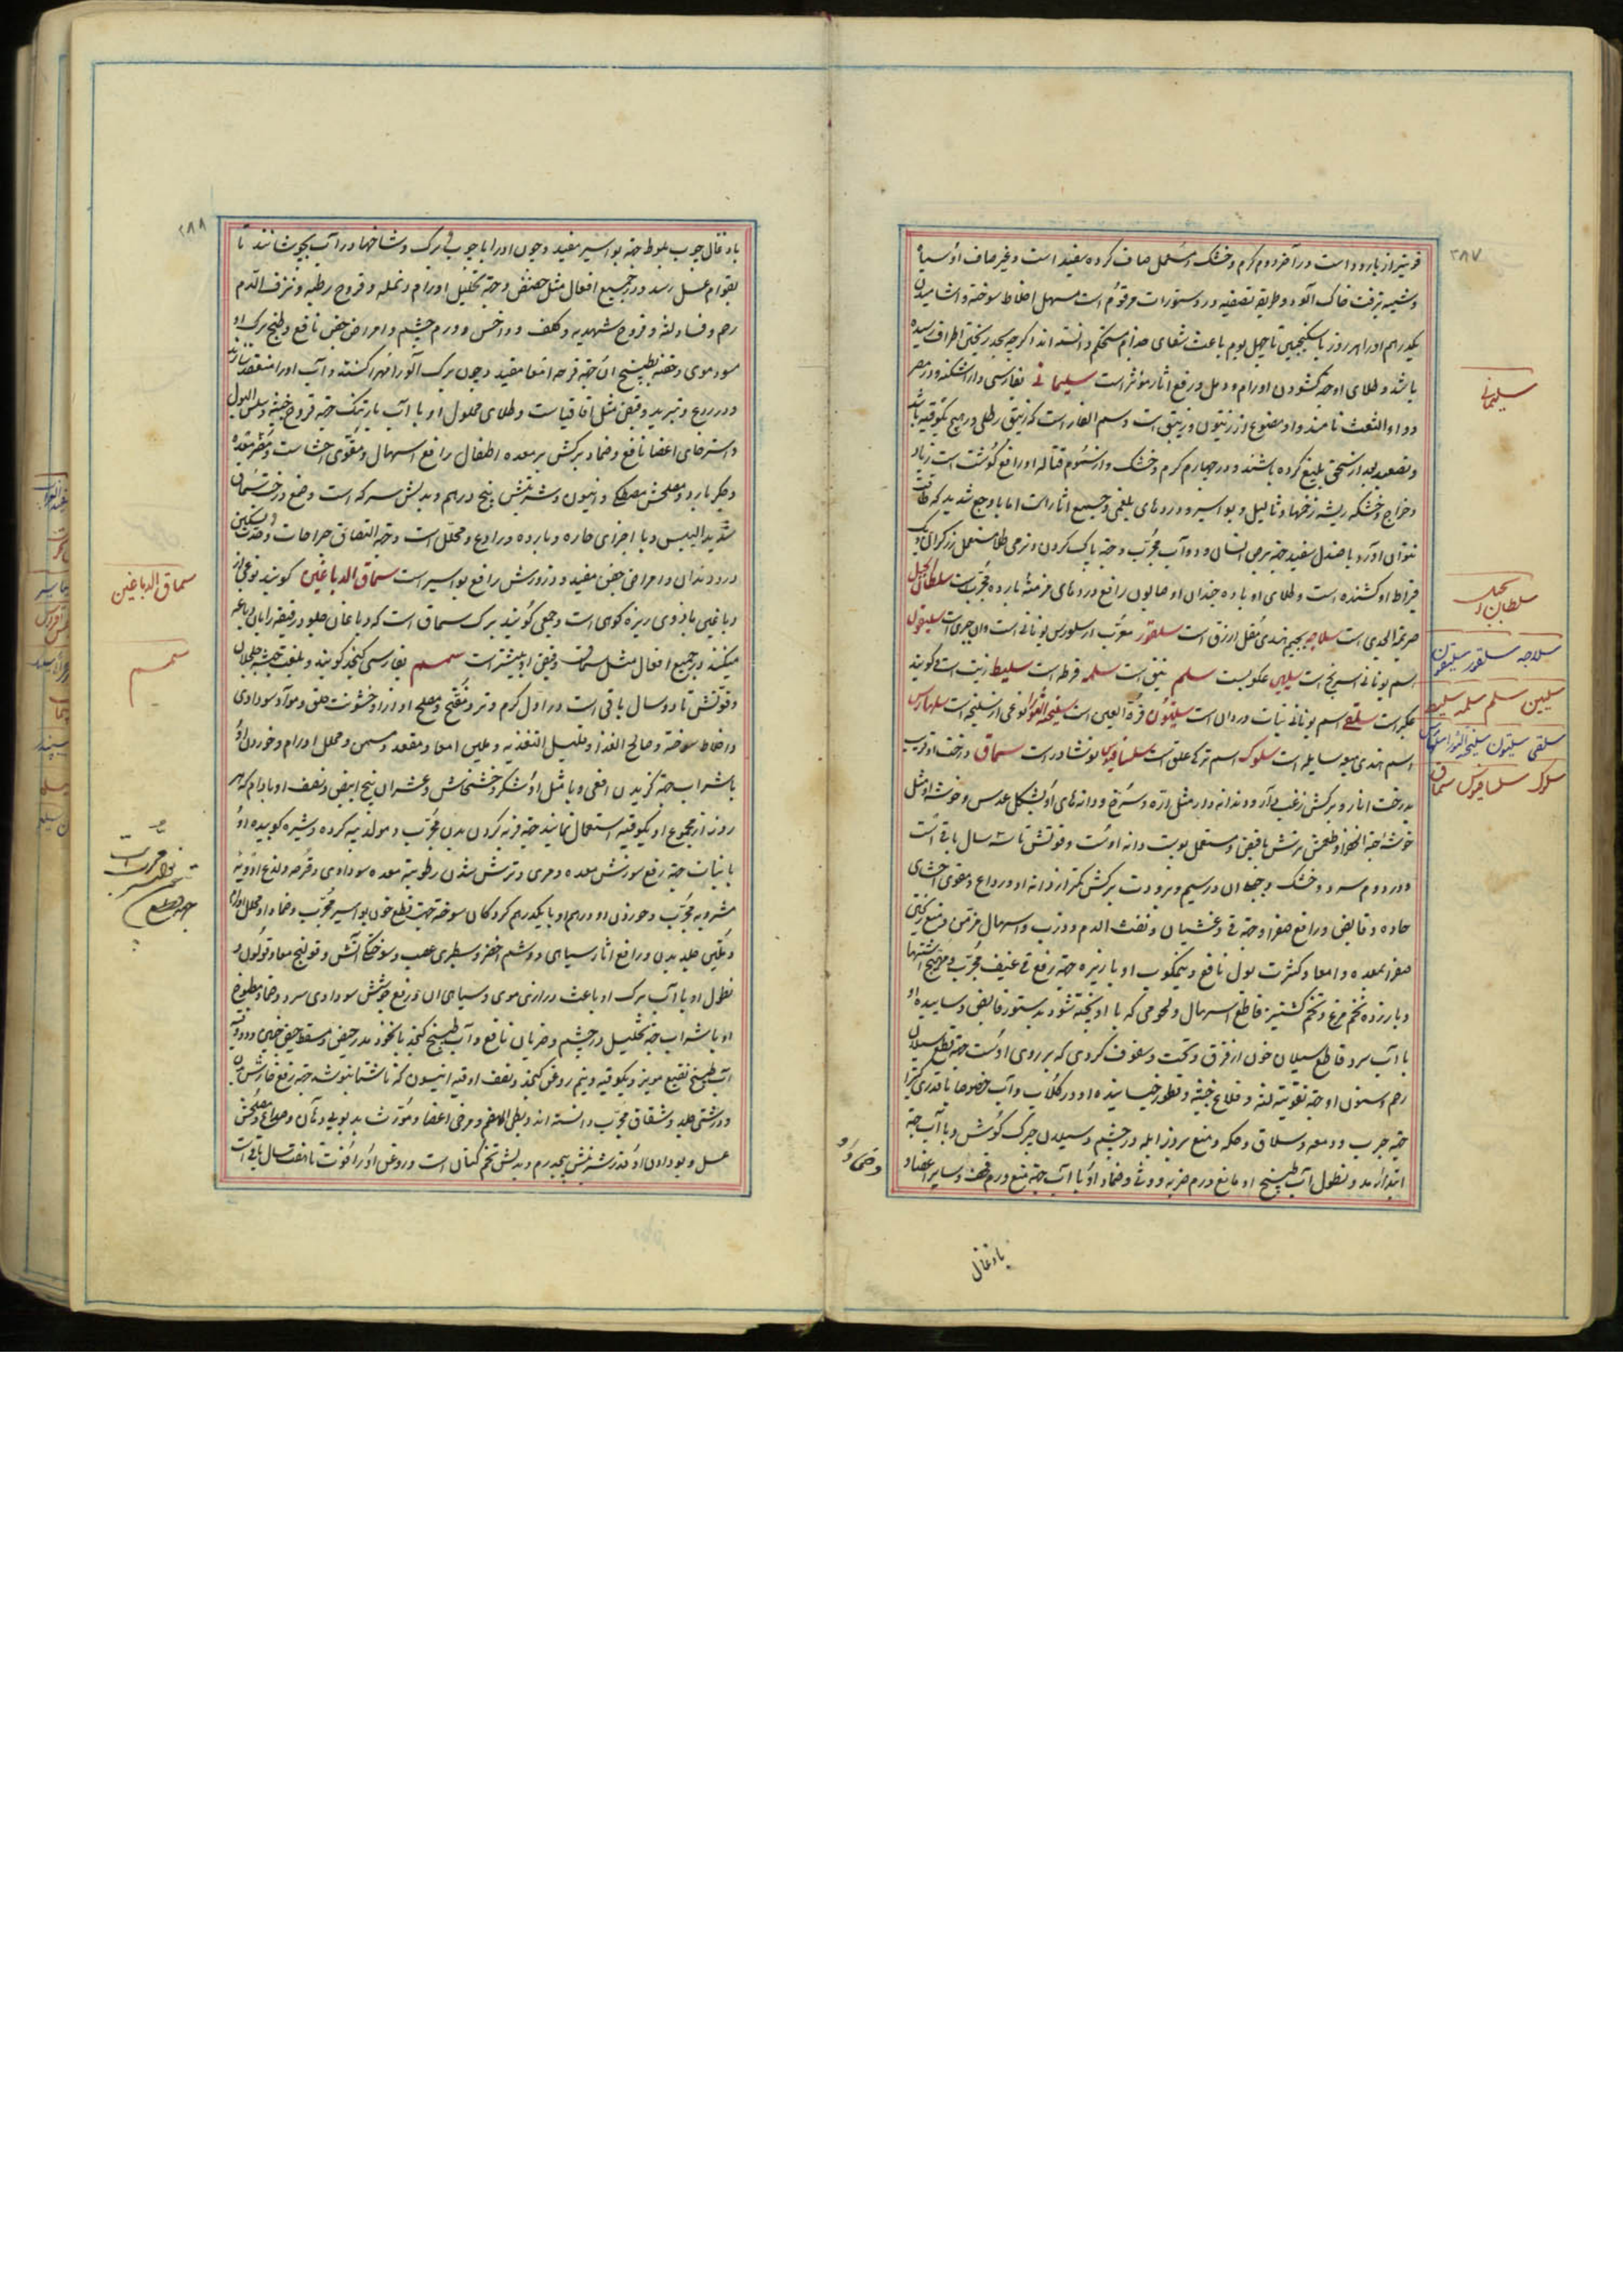 ۲۸۷
قویتر از بارود است در آخر دوم گرم و خشک و مستعمل صاف کرده سفید است و غیر صاف او سیاه
و شبیه بزفت خاک آلود و طریق تصفیه در دستورات مرقوم است مسهل اخلاط سوخته و آشامیدن
یکدرهم او را هر روز با سکنجبین تا چهل یوم باعث شفای جذام مستحکم دانسته‌اند اگرچه بحد ریختن اطراف رسیده
باشد و طلای او جهة گشودن اورام و دمل و رفع آثار مؤثر است سلیمانی بفارسی داراشکنه و در مصر
دواء الشعث نامند و او مصنوع از زیبق است و سم الفار است که زیبق رطلی و رهج یکوقیه باشد
و تصعید بعد از سحق بلیغ کرده باشند و در چهارم گرم و خشک و از سموم قتاله و رافع گوشت است زیاد
و خراج و خشکه ریشه زخمها و ثالیل و بواسیر و دردهای بلغمی و جمیع آثار است اما با وجع شدید که طاقت
نتوان آورد با صندل سفید جهة برص انسان و دواب مجرب و جهة پاک کردن و نرمی طلا مستعمل زرگران و یک
قیراط او کشنده است و طلای او با ده چندان او صابون رافع دردهای مزمنه بارده مجربست سلطان الجبل
صریمة الجدی است سلاجه بجیم هندی مقل ازرق است سلقور معرب از سلورس یونانی است و آن جری است سلیقون
اسم یونانی اسرنج است سلبین عکوبست سلم نبق است سلمه قرظ است سلیط زیت است گویند
عکر است سلقی اسم یونانی نبات دروان است سلیئون قرة العین است سلیخة الثور نوعی از سلیخه است سلهارس
اسم هندی میعه سایله است سلوک اسم ترکی علق است سلسافیوس نوشادر است سماق درخت او قریب
بدرخت انار و برگش زغب‌دار و دندانه‌دار مثل اره و سرخ و دانه‌های او بشکل عدس و خوشه او مثل
خوشه حبة الخضرا و طعمش ترش با قبض و مستعمل پوست دانه اوست و قوتش تا سه سال باقی است
و در دوم سرد و خشک و جهة آن در سیم و برودت برگش کمتر از دانه او و رداع و مقوی احشای
حاده و قابض و رافع صفرا و جهة قی و غشیان و نفث الدم و ذرب و اسهال مزمن و منع ریختن
صفرا بمعده و امعا و کثرت بول نافع و نیمکوب او با زیره جهة رفع قی عنیف مجرب و مهیج اشتها
و با زرده تخم مرغ و تخم گشنیز قاطع اسهال و لحومی که با او پخته شود بدستور قابض و ساییده او
با آب سرد قاطع سیلان خون از فرق و تحت و سفوف گردی که بر روی اوست جهة قطع سیلان
رحم و سنون او جهة تقویت لثه و قلاع خبیثه و قطور خیسانیده او در گلاب و آب خصوصا با قدری کتیرا
جهة جرب و دمعه و سلاق و حکه و منع بروز ابله در چشم و سیلان چرک گوش و با آب جهة
ابتدای رمد و نطول آب طبیخ او مانع ورم ضربه و وثی و ضماد او با آب جهة منع ورم قحف و سایر اعضا و
بادغال
سلیمانی
سلطان الجبل
سلاجه سلقور سلیقون
سلبین سلم سلمه سلیط
سلقی سلیئون سلیخة الثور سلهارس
سلوک سلسافیوس سماق
۲۸۸
با ذغال چوب بلوط جهة بواسیر مفید و چون او را یا چوب و برگ و شاخها در آب بجوشانند تا
بقوام عسل رسد در جمیع افعال مثل حضض و جهة تحلیل اورام و نمله و قروح رطبه و نزف الدم
رحم و فساد لثه و قروح شهدیه و کلف و داخس و ورم چشم و امراض جفن نافع و طبخ برگ او
مسود موی و حقنه بطبیخ آن جهة قرحه امعا مفید و چون برگ او را مهرا کنند و آب او را منعقد سازند
در ردع و تبرید و قبض مثل اقاقیاست و طلای محلول او با آب بارتنگ جهة قروح خبیثه و سلس البول
و استرخای اعضا نافع و ضماد برگش بر معده اطفال رافع اسهال و مقوی احشاست و مضر معده
و جگر بارد و مصلحش مصطکی و انیسون و شربتش پنج درهم و بدلش سرکه است و صمغ درخت سماق
شدید الیبس و با اجزای حاره و بارده و رادع و محلل است و جهة التصاق جراحات و حدت و تسکین
درد دندان و امراض جفن مفید و ذرورش رافع بواسیر است سماق الدباغین گویند نوعی از
دباغین باذروی ریزه کوهی است و جمعی گویند برگ سماق است که دباغان جلود رقیقه را بآن دباغه
میکنند در جمیع افعال مثل سماق و قبض او بیشتر است سمسم بفارسی کنجد گویند و بلغت حبشه جلجلان
و قوتش تا دو سال باقی است در اول گرم و تر و مفتح و مصلح آواز و خشونت حلق و مواد سوداوی
و اخلاط سوخته و صالح الغذا و قلیل التغذیه و ملین امعا و مقعد و مسمن و محلل اورام و خوردن او
با شراب جهة گزیدن افعی و با مثل او شکر و خشخاش و عشر آن بیخ ابیض و نصف او بادام که هر
روز از مجموع او یکوقیه استعمال نمایند جهة فربه کردن بدن مجرب و مولد منی و گرده و شیره کوبیده او
با نبات جهة رفع سوزش معده و مری و ترش شدن رطوبت معده سوداوی و قرحه و لذع ادویه
مشروبه مجرب و خوردن دو درهم او با یکدرهم گردکان سوخته جهت قطع خون بواسیر مجرب و ضماد او محلل اورام
و ملین جلد بدن و رافع آثار سیاهی و وشم اخضر و سطبری عصب و سوختگی آتش و قولنج معاء قولون و
نطول او با آب برگ او باعث درازی موی و سیاهی آن و رفع جوشش سوداوی سر و ضماد مطبوخ
او با شراب جهة تحلیل ورم چشم و ضربان نافع و آب طبیخ کنجد با نخود مدر حیض و مسقط جنین و دو وقیه
آب طبیخ نقیع مویز و یکوقیه و نیم روغن کنجد و نصف اوقیه انیسون که ناشتا بنوشند جهة رفع خارش بدن
و درشتی جلد و شقاق مجرب دانسته‌اند و بطیء الهضم و مرخی اعضا و مورث بدبویی دهان و صداع و مصلحش
عسل و بودادن او و قدر شربتش پنجدرم و بدلش تخم کتان است و روغن او را قوت تا هفت سال باقی است
سماق الدباغین
سمسم